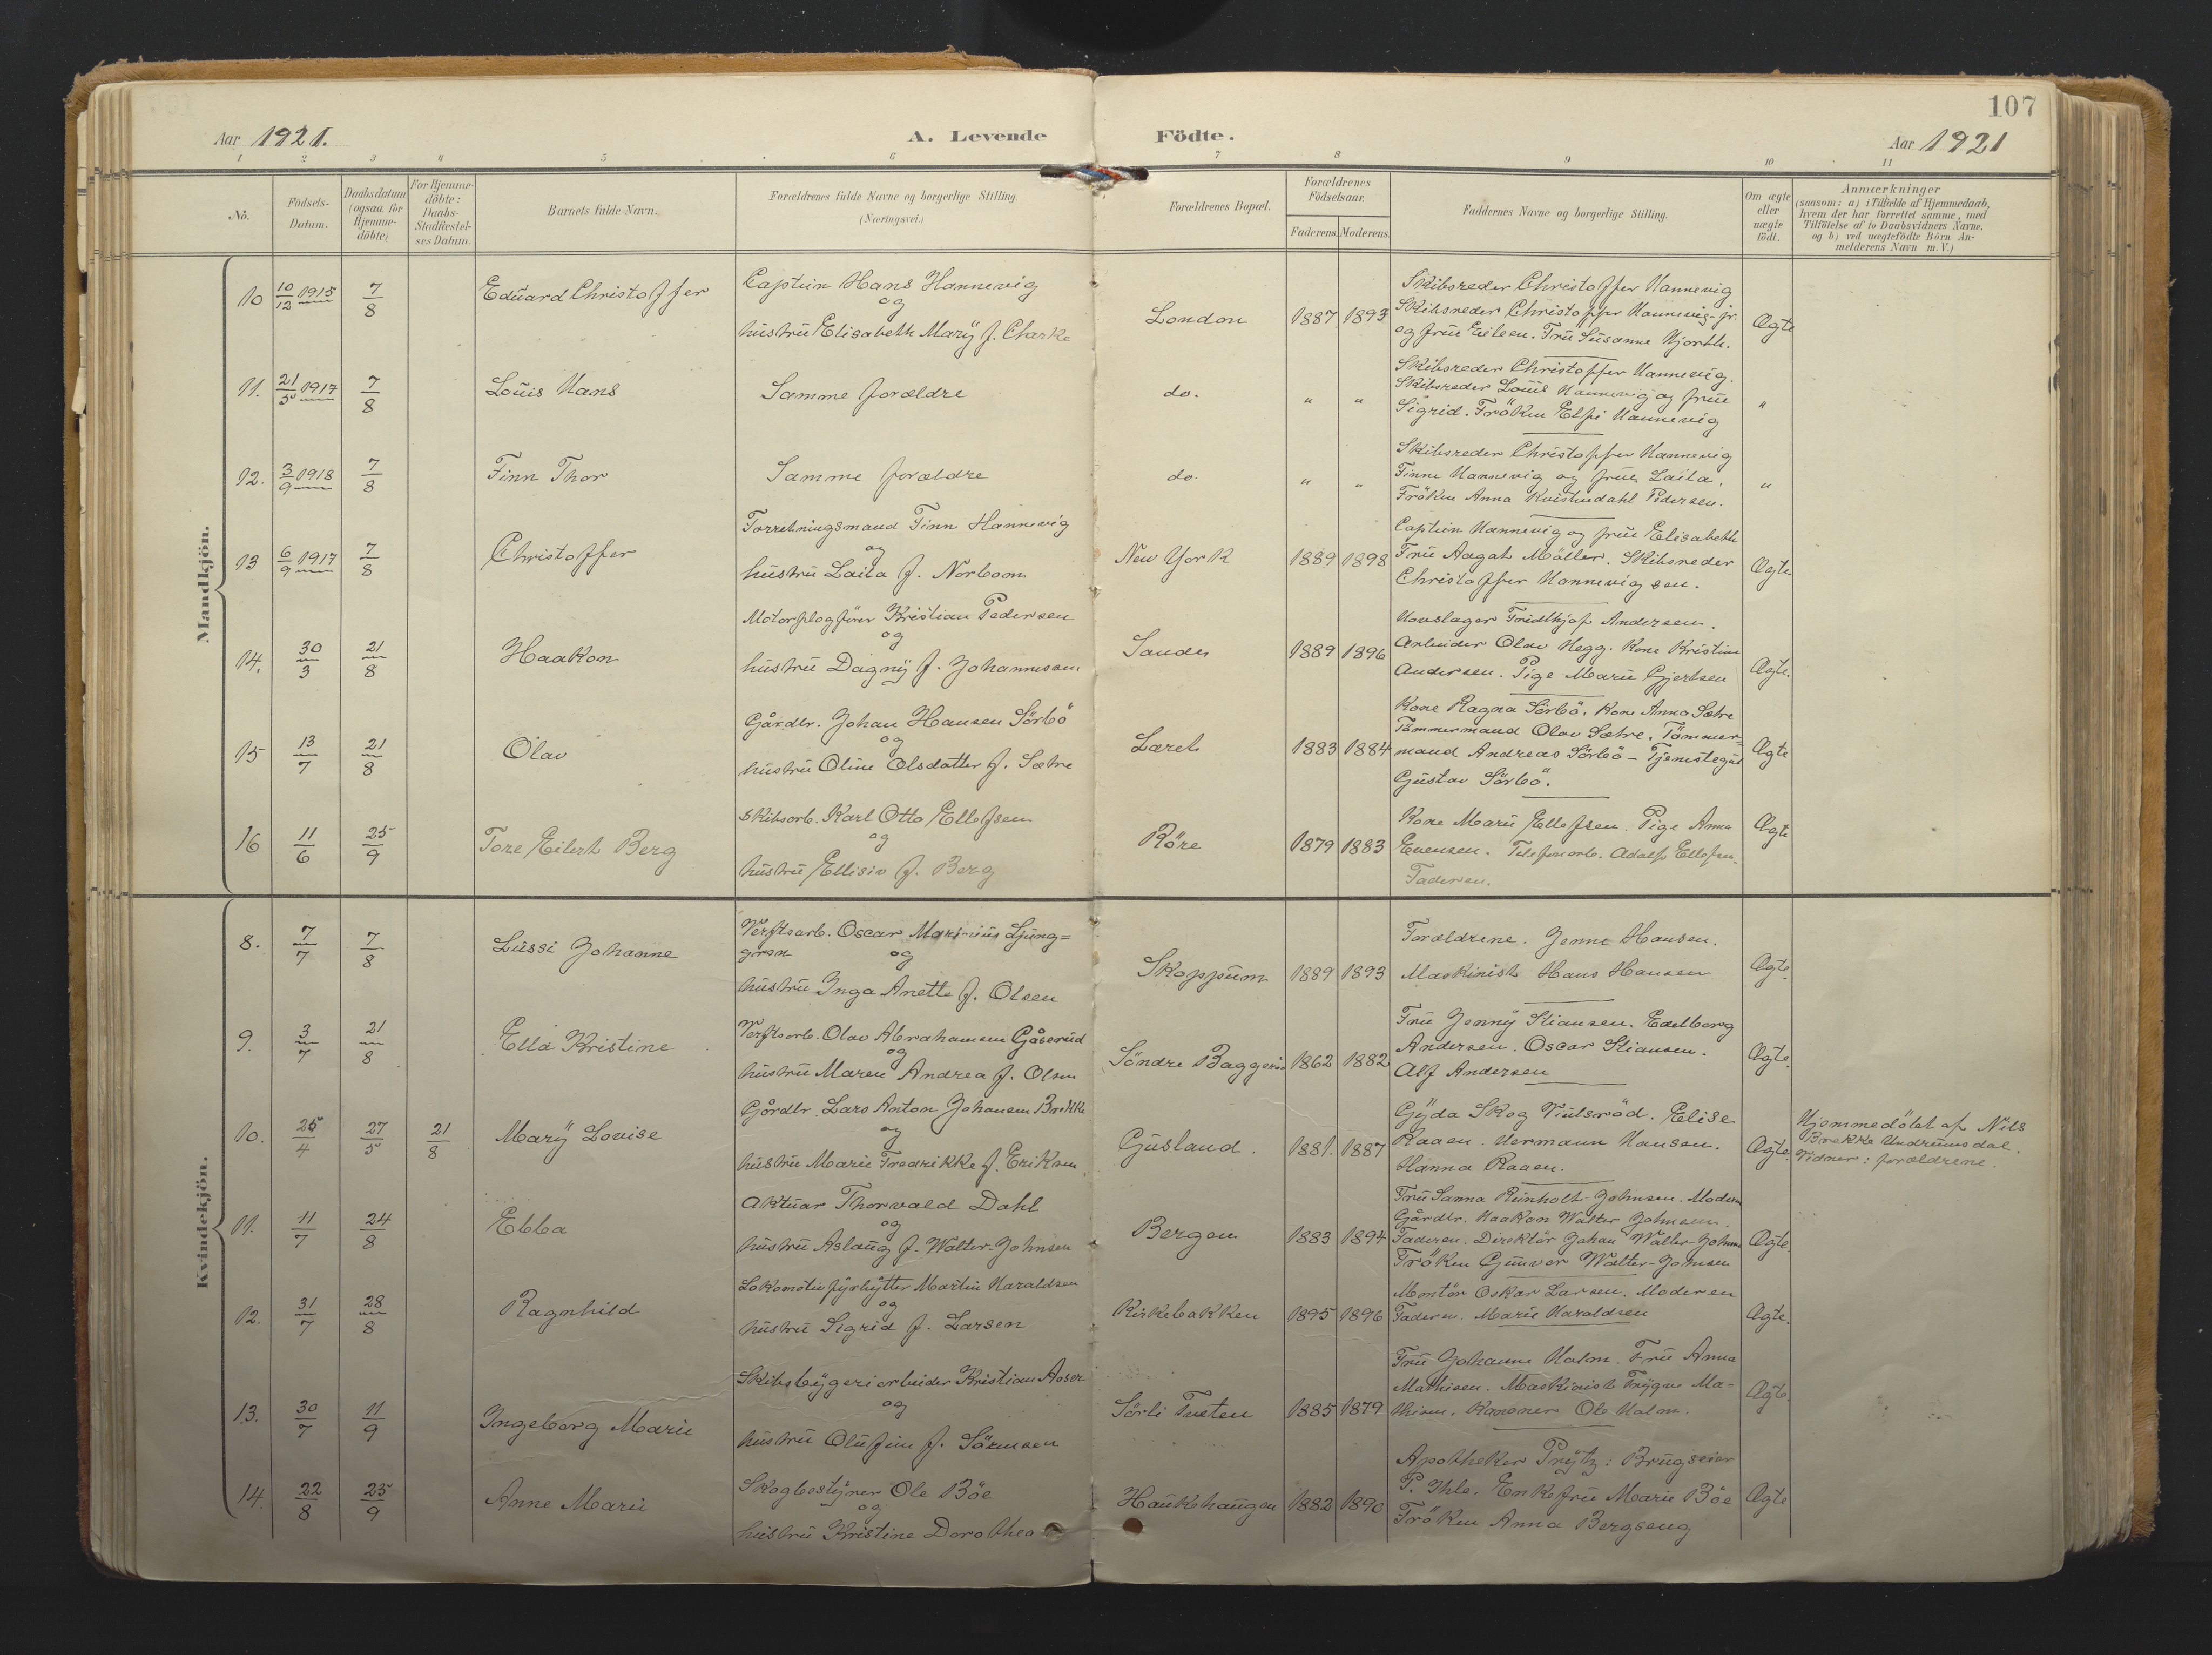 107
Aar 1921.
A. Levende
Födte.
Aar 1921
1 2 3 4 5 6 7 8 9 10 11
No.
Födsels-
Datum.
Daabsdatum
(ogsaa for
Hjemme-
döbte)
For Hjemme-
döbte:
Daabs-
Stadfæstel-
ses Datum.
Barnets fulde Navn.
Forældrenes fulde Navne og borgerlige Stilling.
(Næringsvei.)
Forældrenes Bopæl.
Forældrenes
Födselsaar.
Faderens. Moderens.
Faddernes Navne og borgerlige Stilling.
Om ægte
eller
uægte
födt.
Anmærkninger
(saasom: a) i Tilfælde af Hjemmedaab,
hvem der har forrettet samme, med
Tilföielse af to Daabsvidners Navne.
og b) ved uægtefödte Börn An-
melderens Navn m. V.)
Mandkjön.
10 10/12 1915 7/8 Eduard Christoffer
Captein Hans Hannevig
og
hustru Elisabeth Mary f. Clarke
London 1887 1893
Skibsreder Christoffer Hannevig
Skibsreder Christoffer Hannevig jr.
og frue Eileen. Fru Susanne Hjorth.
Ægte
11. 21/5 1917 7/8 Louis Hans
Samme forældre
do. " "
Skibsreder Christoffer Hannevig.
Skibsreder Louis Hannevig og frue
Sigrid. Fröken Elfi Hannevig
"
12. 3/9 1918 7/8 Finn Thor
Samme forældre
do. " "
Skibsreder Christoffer Hannevig
Finn Hannevig og frue Laila.
Fröken Anna Kvistendahl Pedersen.
"
13 6/9 1917 7/8 Christoffer
Forretningsmand Finn Hannevig
og
hustru Laila f. Norbom
New York 1889 1898
Captein Hannevig og frue Elisabeth
Fru Aagat Möller. Skibsreder
Christoffer Hannevig sen.
Ægte
14. 30/3 21/8 Haakon
Motorplogförer Kristian Pedersen
og
hustru Dagny f. Johannesen
Sande 1889 1896
Hovslager Fridthjof Andersen.
Arbeider Olav Hegg. Kone Kristine
Andersen. Pige Marie Gjertsen
Ægte.
15 13/7 21/8 Olav
Gårdbr. Johan Hansen Sörbö
og
hustru Oline Olsdatter f. Sætre
Læret 1883 1884
Kone Ragna Sörbö. Kone Anna Sætre
Tömmermand Olav Sætre. Tömmer-
mand Andreas Sörbö - Tjenstegut
Gustav Sörbö.
Ægte
16 11/6 25/9 Tore Eilert Berg
Skibsarb. Karl Otto Ellefsen
og
hustru Ellisiv f. Berg
Röre 1879 1883
Kone Marie Ellefsen. Pige Anna
Evensen. Telefonarb. Adolf Ellefsen.
Faderen.
Ægte
Kvindekjön.
8. 7/7 7/8 Lussi Johanne
Verftsarb. Oscar Marinius Ljung=
gren og
hustru Inga Anette f. Olsen
Skoppum 1889 1893
Forældrene. Jenne Hansen.
Maskinist Hans Hansen
Ægte.
9. 3/7 21/8 Ella Kristine
Verftsarb. Olav Abrahamsen Gåserud
og
hustru Maren Andrea f. Olsen
Söndre Baggerö 1862 1882
Fru Jenny Stiansen. Edelborg
Andersen. Oscar Stiansen.
Alf Andersen
Ægte.
10. 25/4 27/5 21/8 Mary Lovise
Gårdbr. Lars Anton Johansen Brekke
og
hustru Marie Fredrikke f. Eriksen
Gusland. 1881. 1887
Gyda Skog Viulsröd. Elise
Raaen. Hermann Hansen.
Hanna Raaen.
Ægte.
Hjemmedöbt af Nils
Brekke Undrumsdal.
Vidner: forældrene.
11. 11/7 24/8 Ebba
Aktuar Thorvald Dahl
og
hustru Aslaug f. Walter-Johnsen
Bergen 1883 1894
Fru Sanna Reinholt-Johnsen. Moderen
Gårdbr. Haakon Walter Johnsen.
Faderen. Direktör Johan Walter-Johnsen
Fröken Gunvor Walter-Johnsen
Ægte.
12. 31/7 28/8 Ragnhild
Lokomotivfyrbytter Martin Haraldsen
og
hustru Sigrid f. Larsen
Kirkebakken 1895 1896
Montör Oskar Larsen. Moderen
Faderen. Marie Haraldsen
Ægte.
13. 30/7 11/9 Ingeborg Marie
Skibsbygeriarbeider Kristian Aaser
og
hustru Olufine f. Sörensen
Sörli Tveten 1885 1879
Fru Johanne Holm. Fru Anna
Mathisen. Maskinist Trygve Ma=
thisen. Kanoner Ole Holm.
Ægte.
14. 22/8 25/9 Anne Marie
Skogbestyrer Ole Böe
og
hustru Kristine Dorothea
Haukehaugen 1882 1890
Apotheker Prytz: Brugseier
P. Ihle. Enkefrue Marie Böe
Fröken Anna Bergseng
Ægte